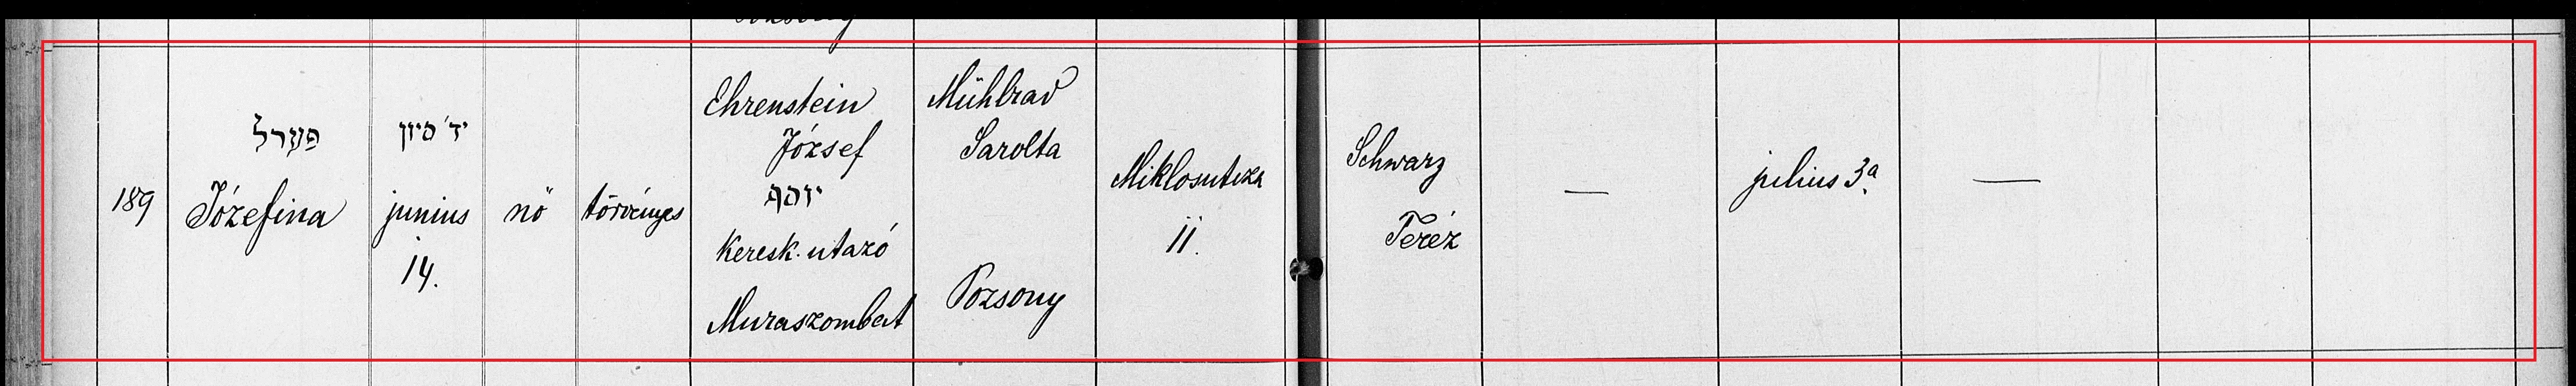 189
פערל
Józefina
יד׳ סיון
junius
14.
nö
törvényes
Ehrenstein
József
יוסף
keresk. utazó
Muraszombat
Mühlrad
Sarolta
Pozsony
Miklosutcza
11.
Schwarz
Teréz
—
julius 3a.
—